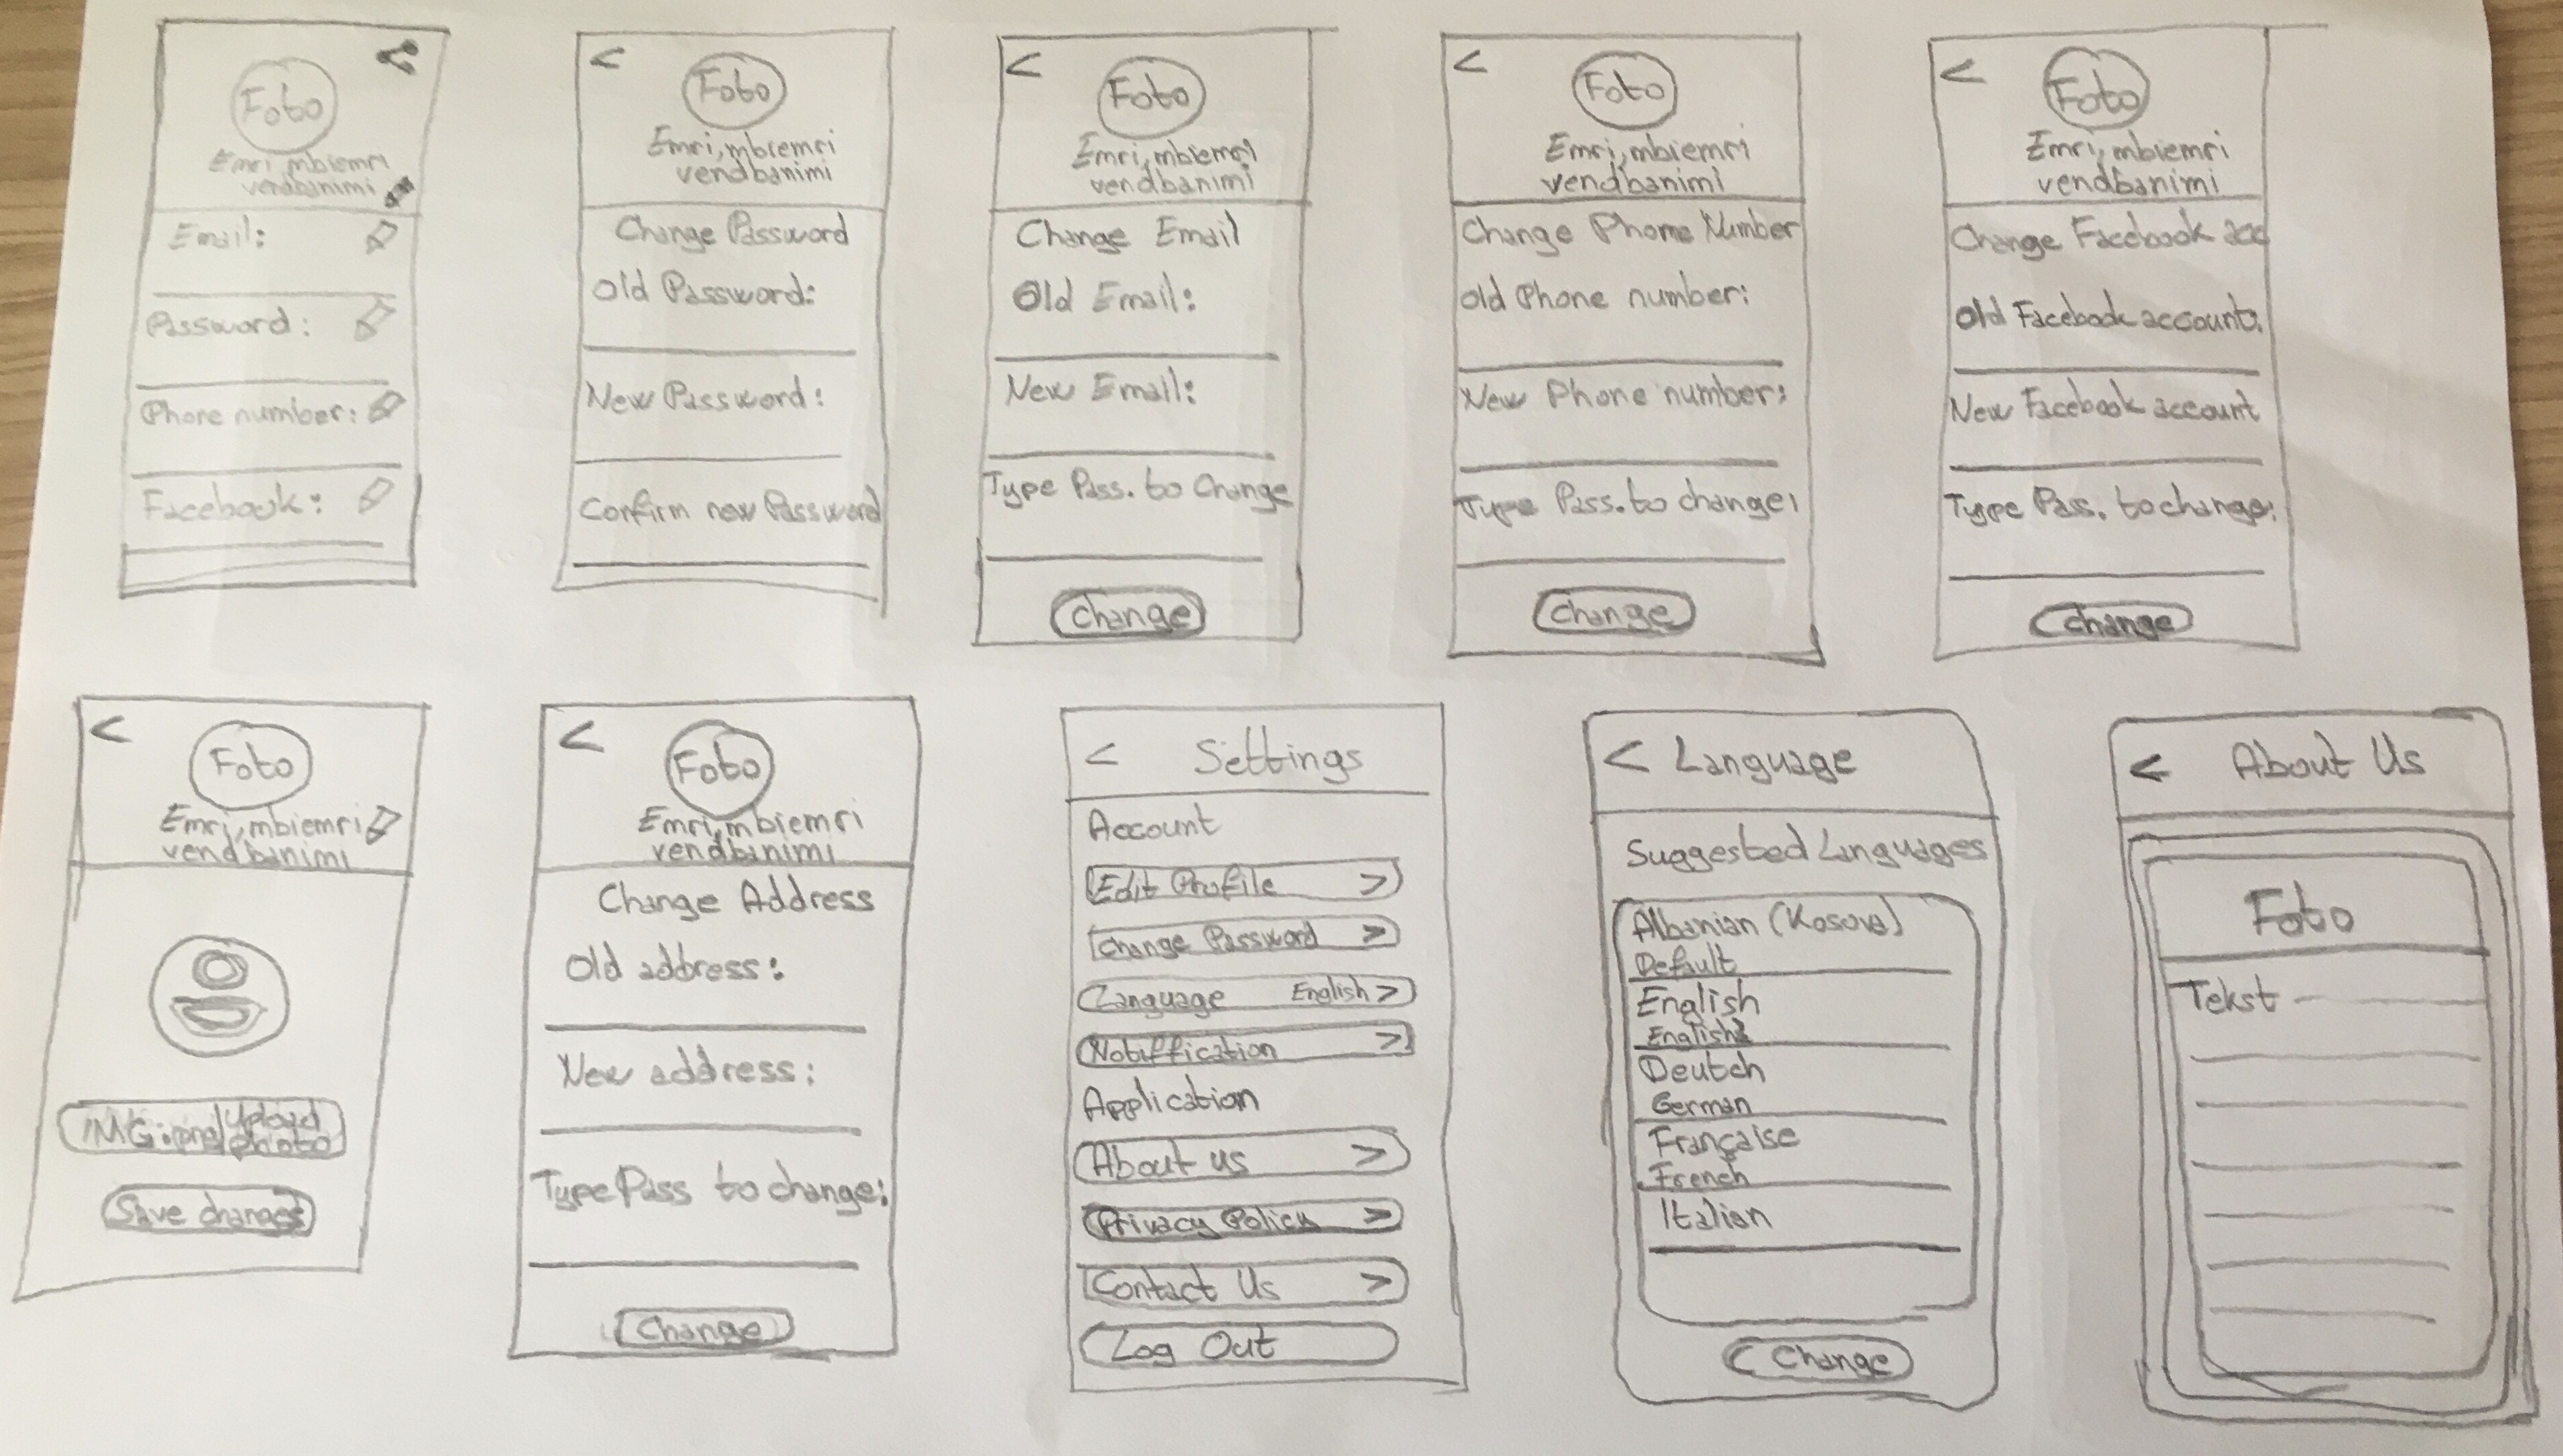 Foto
Emri, mbiemri
vendbanimi
Email:
Password:
Phone number:
Facebook:
<
Foto
Emri, mbiemri
vendbanimi
Change Password
Old Password:
New Password:
Confirm new Password
<
Foto
Emri, mbiemri
vendbanimi
Change Email
Old Email:
New Email:
Type Pass. to Change
Change
<
Foto
Emri, mbiemri
vendbanimi
Change Phone Number
Old Phone number:
New Phone number:
Type Pass. to change:
Change
<
Foto
Emri, mbiemri
vendbanimi
Change Facebook acc
Old Facebook account:
New Facebook account
Type Pass. to change:
Change
<
Foto
Emri, mbiemri
vendbanimi
IMG.png Upload
photo
Save changes
<
Foto
Emri, mbiemri
vendbanimi
Change Address
Old address:
New address:
Type Pass to change:
Change
< Settings
Account
Edit Profile >
Change Password >
Language English >
Notiffication >
Application
About us >
Privacy Policy >
Contact Us >
Log Out
< Language
Suggested Languages
Albanian (Kosova)
Default
English
English
Deutch
German
Française
French
Italian
Change
< About Us
Foto
Tekst